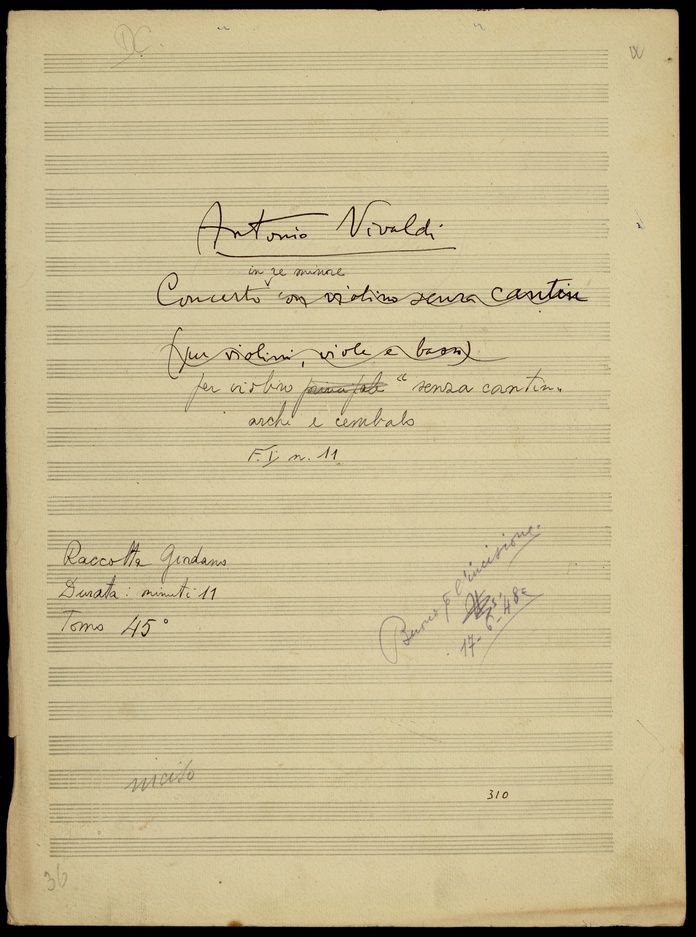 DC.
IX
Antonio Vivaldi
in re minore
Concerto con violino senza cantin
(per violini, viole e bassi)
per violino principale "senza cantin"
archi e cembalo
F. I n. 11
Raccolta Giordano
Durata: minuti 11
Tomo 45°
Buono p l'incisione.
17-6-48
inciso
310
36